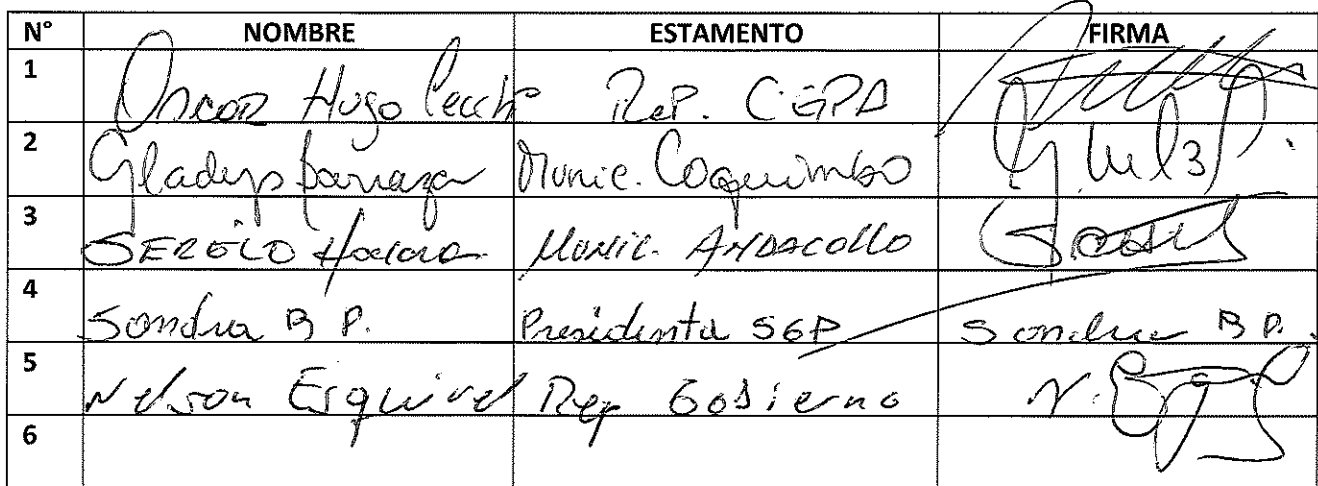 N° NOMBRE ESTAMENTO FIRMA
1 Oscar Hugo Rep. CGPA
2 Gladys Barraza Munic. Coquimbo
3 SERGIO Munic. ANDACOLLO
4 Sandra B P. Presidenta SGP Sandra B P.
5 Nelson Esquivel Rep Gobierno
6